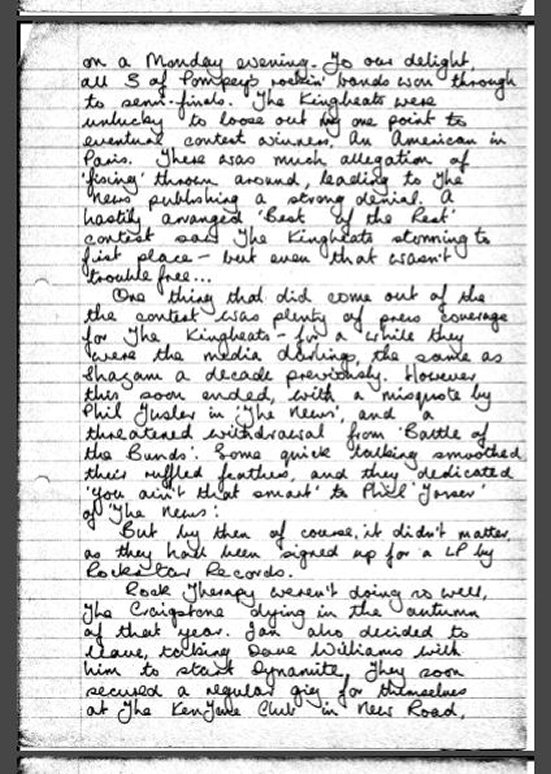 on a Monday evening. To our delight,
all 3 of Pompey's rockin' bands won through
to semi-finals. The Kingbeats were
unlucky to loose out by one point to
eventual contest winners, An American in
Paris. There was much allegation of
'fixing' thrown around, leading to The
News publishing a strong denial. A
hastily arranged 'Best of the Rest'
contest saw The Kingbeats storming to
first place - but even that wasn't
trouble free...
One thing that did come out of the
the contest was plenty of press coverage
for The Kingbeats - for a while they
were the media darlings, the same as
Shazam a decade previously. However
this soon ended, with a misquote by
Phil in 'The News', and a
threatened withdrawal from 'Battle of
the Bands'. Some quick talking smoothed
their ruffled feathers, and they dedicated
'You ain't that smart' to Phil 'Tosser'
of 'The News'.
But by then of course, it didn't matter,
as they had been signed up for a LP by
Rockstar Records.
Rock Therapy weren't doing so well,
The Craigstone dying in the autumn
of that year. Ian also decided to
leave, taking Dave Williams with
him to start Dynamite. They soon
secured a regular gig for themselves
at The Club in New Road,